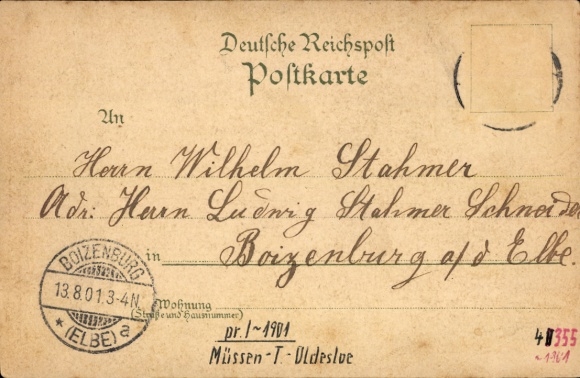 Deutsche Reichspost
Postkarte
An
Herrn Wilhelm Stahmer
Adr: Herrn Ludwig Stahmer Schneider
in Boizenburg a/d Elbe.
BOIZENBURG
13.8.01.3-4N.
* (ELBE) a
Wohnung
(Straße und Hausnummer)
pr. 1~1901
Müssen-T.-Oldesloe
355
~1901